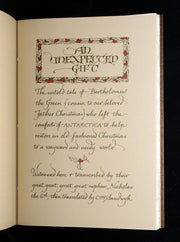 AN
UNEXPECTED
GIFT
The untold tale of Bartholomew
the Green (cousin to our beloved
Father Christmas) who left the
comforts of ANTARCTICA to help
restore an old-fashioned Christmas
to a wayward and needy world
Witnessed here & transcribed by their
great, great, great, great nephew, Nicholas
the 6th, then translated by